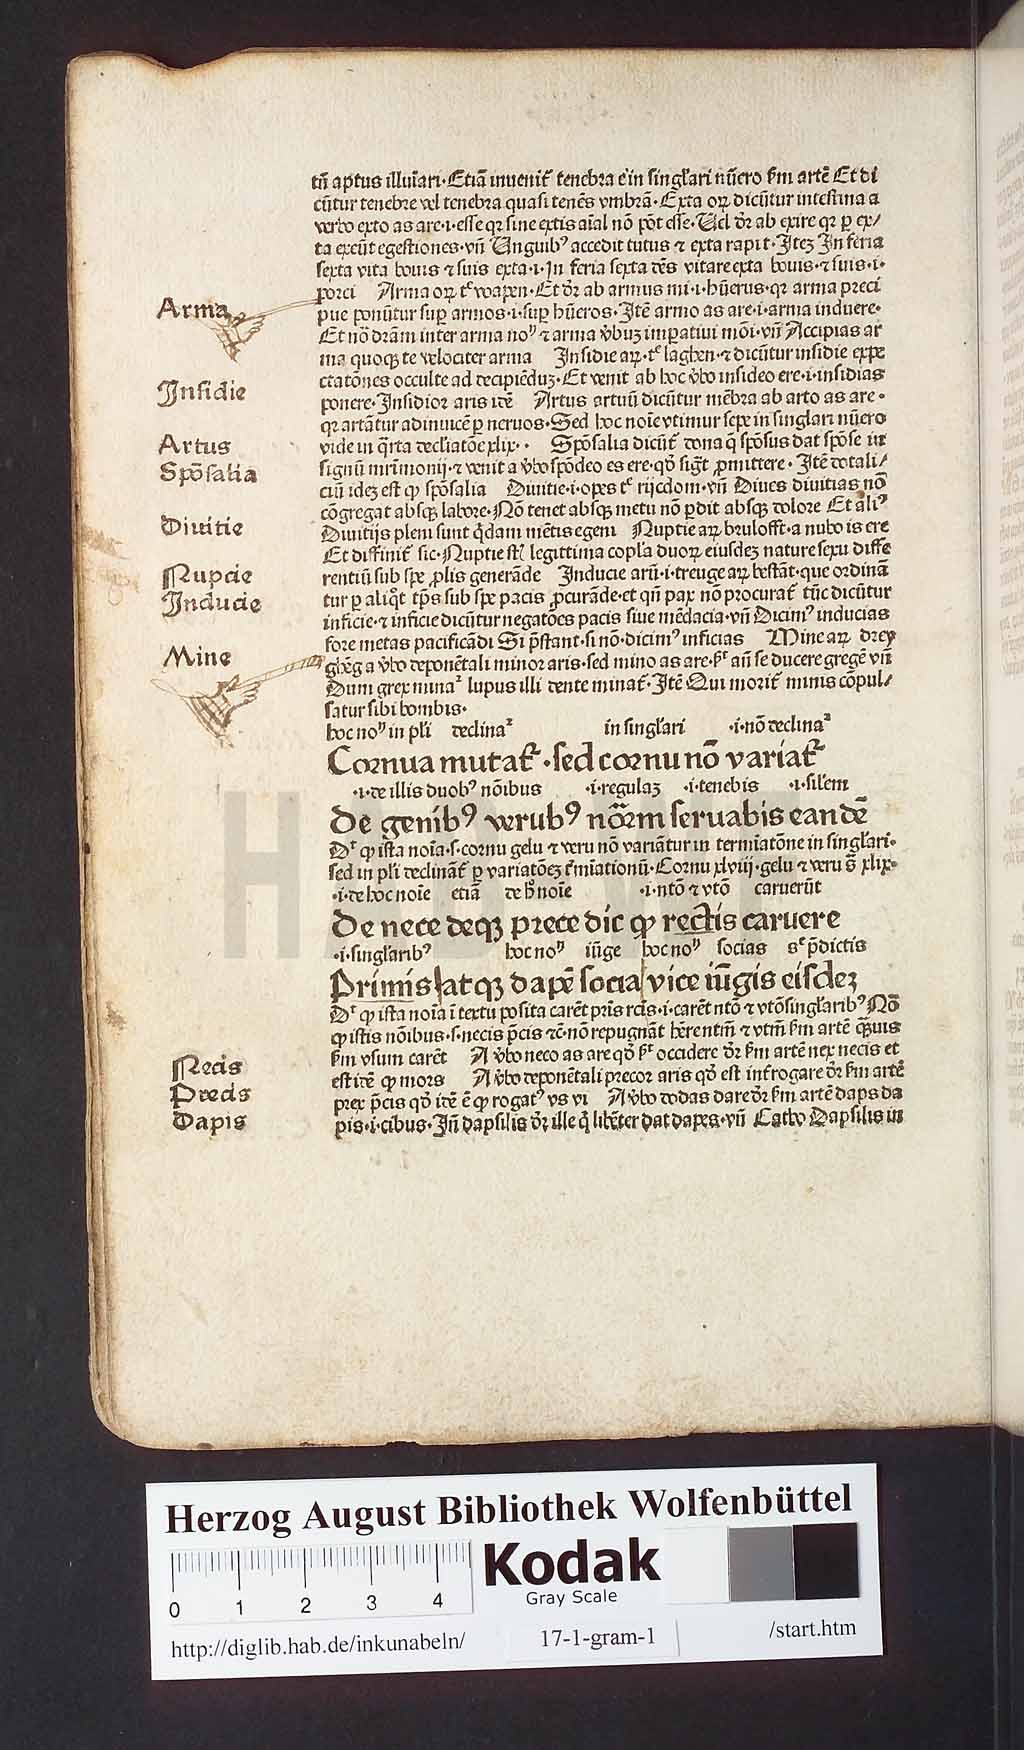 tñ aptus illuĩari·Etiã inuenit᷑ tenebra e᷑ in singl'ari nũero ẜm artẽ Et di
cũtur tenebre vel tenebra quasi tenẽs vmbrã·Exta oꝝ dicũtur intestina a
verbo exto as are·i·esse qꝛ sine extis aĩal nõ põt esse·Uel dr̃ ab exire qꝛ ꝑ ex/
ta exeũt egestiones·vñ Unguibꝰ accedit tutus ⁊ exta rapit·Itez In feria
sexta vita bouis ⁊ suis exta·i·In feria sexta dẽs vitare exta bouis·⁊ suis·i·
porci Arma oꝝ t᷑ wapen·Et dr̃ ab armus mi·i·hũerus·qꝛ arma preci
Arma
pue ponũtur suꝑ armos·i·suꝑ hũeros·Itẽ armo as are·i·arma induere·
Et nõ drãm inter arma noꝰ ⁊ arma v̓buꝫ imꝑatiui mõi·vñ Accipias ar
ma quoqꝫ te velociter arma Insidie aꝝ·t᷑ laghen·⁊ dicũtur insidie expe
ctatõnes occulte ad decipiẽduꝫ·Et venit ab hoc v̓bo insideo ere·i·insidias
Insidie
ponere·Insidior aris idẽ Artus artuũ dicũtur mẽbra ab arto as are·
qꝛ artãtur adinuicẽ ꝑ neruos·Sed hoc noĩe vtimur sepe in singl'ari nũero
Artus
vide in q̃rta decl'iatõe xlix·· Spõsalia dicũt᷑ dona q̃ spõsus dat spõse in
Spõsalia
signũ mr̃imonij·⁊ venit a v̓bo spõdeo es ere·qd̓ sigt᷑ ꝓmittere·Itẽ dotali/
ciũ ideꝫ est qꝫ spõsalia Diuitie·i·opes t᷑ rijcdom·vñ Diues diuitias nõ
cõgregat absqꝫ labore·Nõ tenet absqꝫ metu nõ ꝑdit absqꝫ dolore Et aliꝰ
Diuitie
Diuitijs pleni sunt q̓dam mẽtis egeni Nuptie aꝝ brulofft·a nubo is ere
Et diffinit᷑ sic·Nuptie st̃ legittima copl'a duoꝝ eiusdeꝫ nature sexu diffe
Nupcie
rentiũ sub spe ꝓlis generãde Inducie arũ·i·treuge aꝝ bestãt·que ordinã
Inducie
tur ꝑ aliq̓t tp̃s sub spe pacis ꝓcurãde·et qñ pax nõ procurat᷑ tũc dicũtur
inficie·⁊ inficie dicũtur negatões pacis siue mẽdacia·vñ Dicimꝰ inducias
fore metas pacificãdi Si p̃stant·si nõ·dicimꝰ inficias Mine aꝝ drey
Mine
ghẽg a v̓bo deponẽtali minor aris·sed mino as are·ẜt᷑ añ se ducere gregẽ vñ
Dum grex minaᷣ lupus illi dente minat᷑·Itẽ Qui morit᷑ minis cõpul/
satur sibi bombis·
hoc noꝰ in pl'i declinaᷣ in singl'ari ·i·nõ declinaᷣ
Cornua mutat᷑·sed cornu nõ variat᷑
·i·de illis duobꝰ nõibus ·i·regulaꝫ ·i·tenebis ·i·sil'em
De genibꝰ verubꝰ normã seruabis eandẽ
Dᷣ qꝫ ista noĩa·s·cornu gelu ⁊ veru nõ variãtur in termĩatõne in singl'ari·
sed in pl'i declinãt᷑ ꝑ variatõeꝫ t᷑mĩationũ·Cornu xlviij·gelu ⁊ veru s̃ xlix·
·i·de hoc noĩe etiã de h̓ noĩe ·i·ntõ ⁊ vtõ caruerũt
De nece deqꝫ prece dic qꝫ rectis caruere
·i·singl'aribꝰ hoc noꝰ iũge hoc noꝰ socias s᷑ p̃dictis
Primis atqꝫ dapẽ socia vice iũgis eisdeꝫ
Dᷣ qꝫ ista noĩa ĩ textu posita carẽt prĩs rc̃is·i·carẽt ntõ ⁊ vtõ singl'aribꝰ Nõ
qꝫ istis nõibus·s·necis p̃cis ⁊c̃·nõ repugnãt hẽrentiñ ⁊ vtim̃ ẜm artẽ q̃uis
ẜm vsum carẽt A v̓bo neco as are qd̓ ẜt᷑ occidere dr̃ ẜm artẽ nex necis et
Necis
est idẽ qꝫ mors A v̓bo deponẽtali precor aris qd̓ est int᷑rogare dr̃ ẜm artẽ
Precis
prex p̃cis qd̓ idẽ ẽ qꝫ rogatꝰ vs vi A v̓bo do das dare dr̃ ẜm artẽ daps da
Dapis
pis·i·cibus·Iñ dapsilis dr̃ ille q̓ libẽter dat dapes·vñ Catho Dapsilis in
Herzog August Bibliothek Wolfenbüttel
Kodak
Gray Scale
0 1 2 3 4
http://diglib.hab.de/inkunabeln/ 17-1-gram-1 /start.htm
HAB